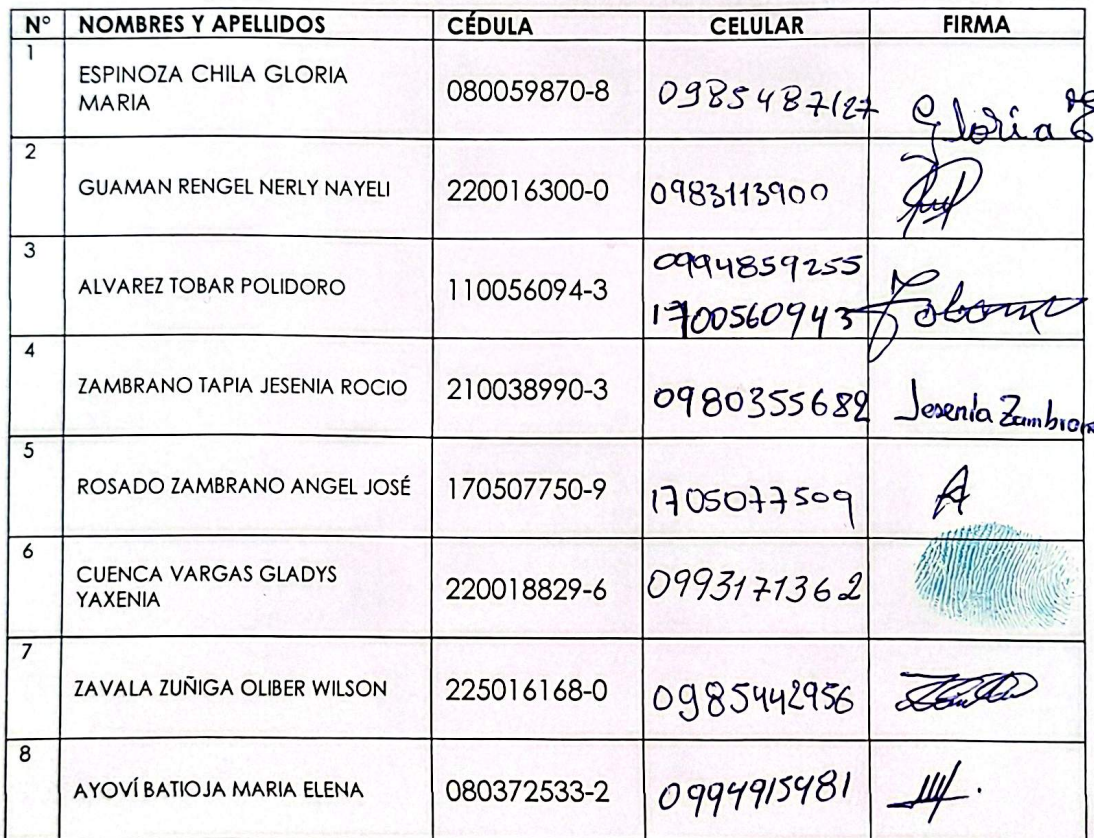 N° NOMBRES Y APELLIDOS CÉDULA CELULAR FIRMA
1
ESPINOZA CHILA GLORIA
MARIA
080059870-8 0985487127 Gloria
2
GUAMAN RENGEL NERLY NAYELI 220016300-0 0983113900
3
ALVAREZ TOBAR POLIDORO 110056094-3
0994859255
1700560943
4
ZAMBRANO TAPIA JESENIA ROCIO 210038990-3 0980355682 Jesenia Zambrano
5
ROSADO ZAMBRANO ANGEL JOSÉ 170507750-9 1705077509 A
6
CUENCA VARGAS GLADYS
YAXENIA
220018829-6 0993171362
7
ZAVALA ZUÑIGA OLIBER WILSON 225016168-0 0985442956
8
AYOVÍ BATIOJA MARIA ELENA 080372533-2 0994915481